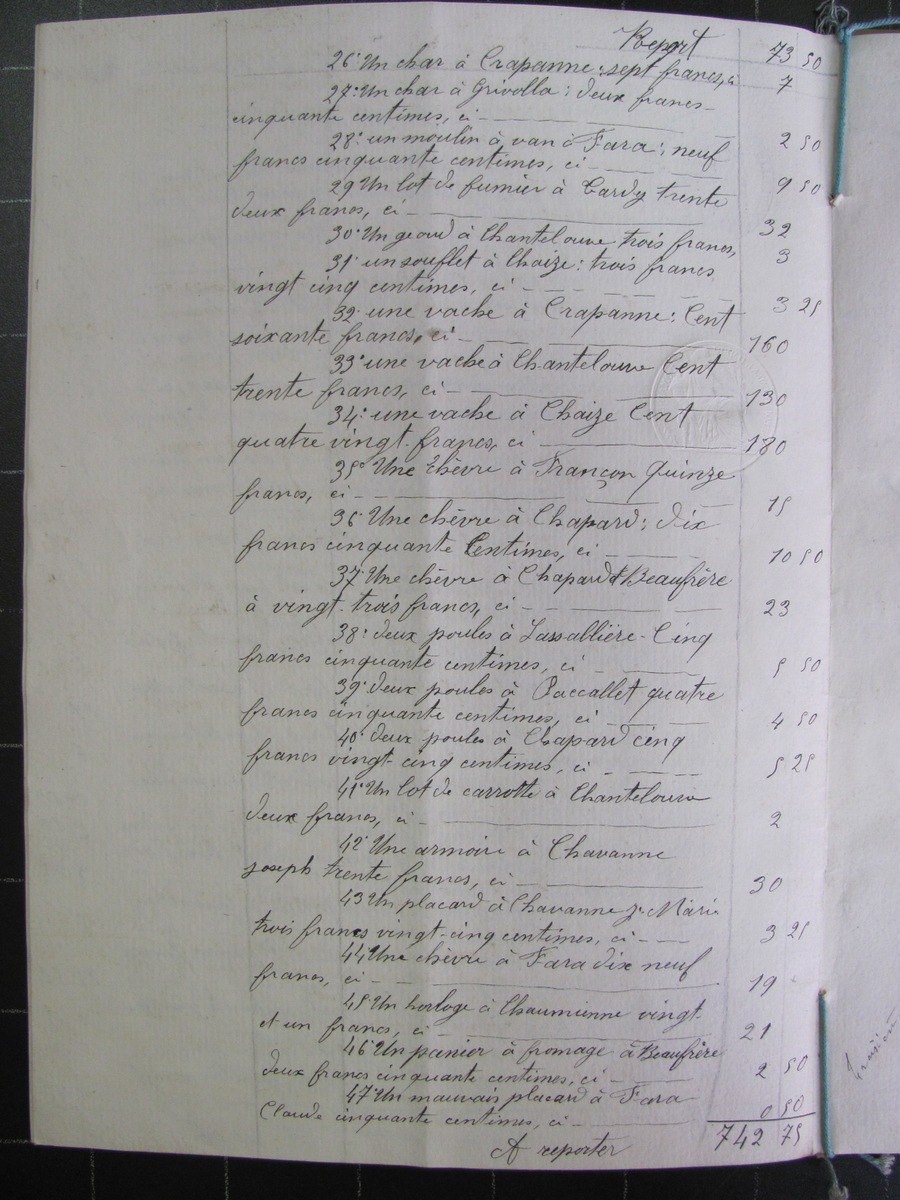 Report 73 50
26° Un char à Crapanne: sept francs, ci 7
27° Un char à Grivolla: deux francs
cinquante centimes, ci 2 50
28° un moulin à van à Fara: neuf
francs cinquante centimes, ci 9 50
29 Un lot de fumier à Cardy trente
deux francs, ci 32
30° Un à Chantelouve trois francs, 3
31° un souflet à Chaize: trois francs
vingt cinq centimes, ci 3 25
32 une vache à Crapanne: Cent
soixante francs, ci 160
33° une vache à Chantelouve Cent
trente francs, ci 130
34° une vache à Chaize Cent
quatre vingt francs, ci 180
35° Une chèvre à Françon Quinze
francs, ci 15
36° Une chèvre à Chapard: dix
francs cinquante Centimes, ci 10 50
37° Une chèvre à Chapard Beaufrère
à vingt-trois francs, ci 23
38° deux poules à Lassablière Cinq
francs cinquante centimes, ci 5 50
39° deux poules à Paccallet quatre
francs cinquante centimes, ci 4 50
40° deux poules à Chapard cinq
francs vingt-cinq centimes, ci 5 25
41° Un lot de carrotte à Chantelouve
deux francs, ci 2
42° Une armoire à Chavanne
joseph trente francs, ci 30
43 Un placard à Chavanne Jn Marie
trois francs vingt-cinq centimes, ci 3 25
44 Une chèvre à Fara dix neuf
francs, ci 19
45 Un horloge à Chaumienne vingt-
et un francs, ci 21
46° Un panier à fromage à Beaufrère
deux francs cinquante centimes, ci 2 50
47° Un mauvais placard à Fara
Claude cinquante centimes, ci 0 50
A reporter 742 75